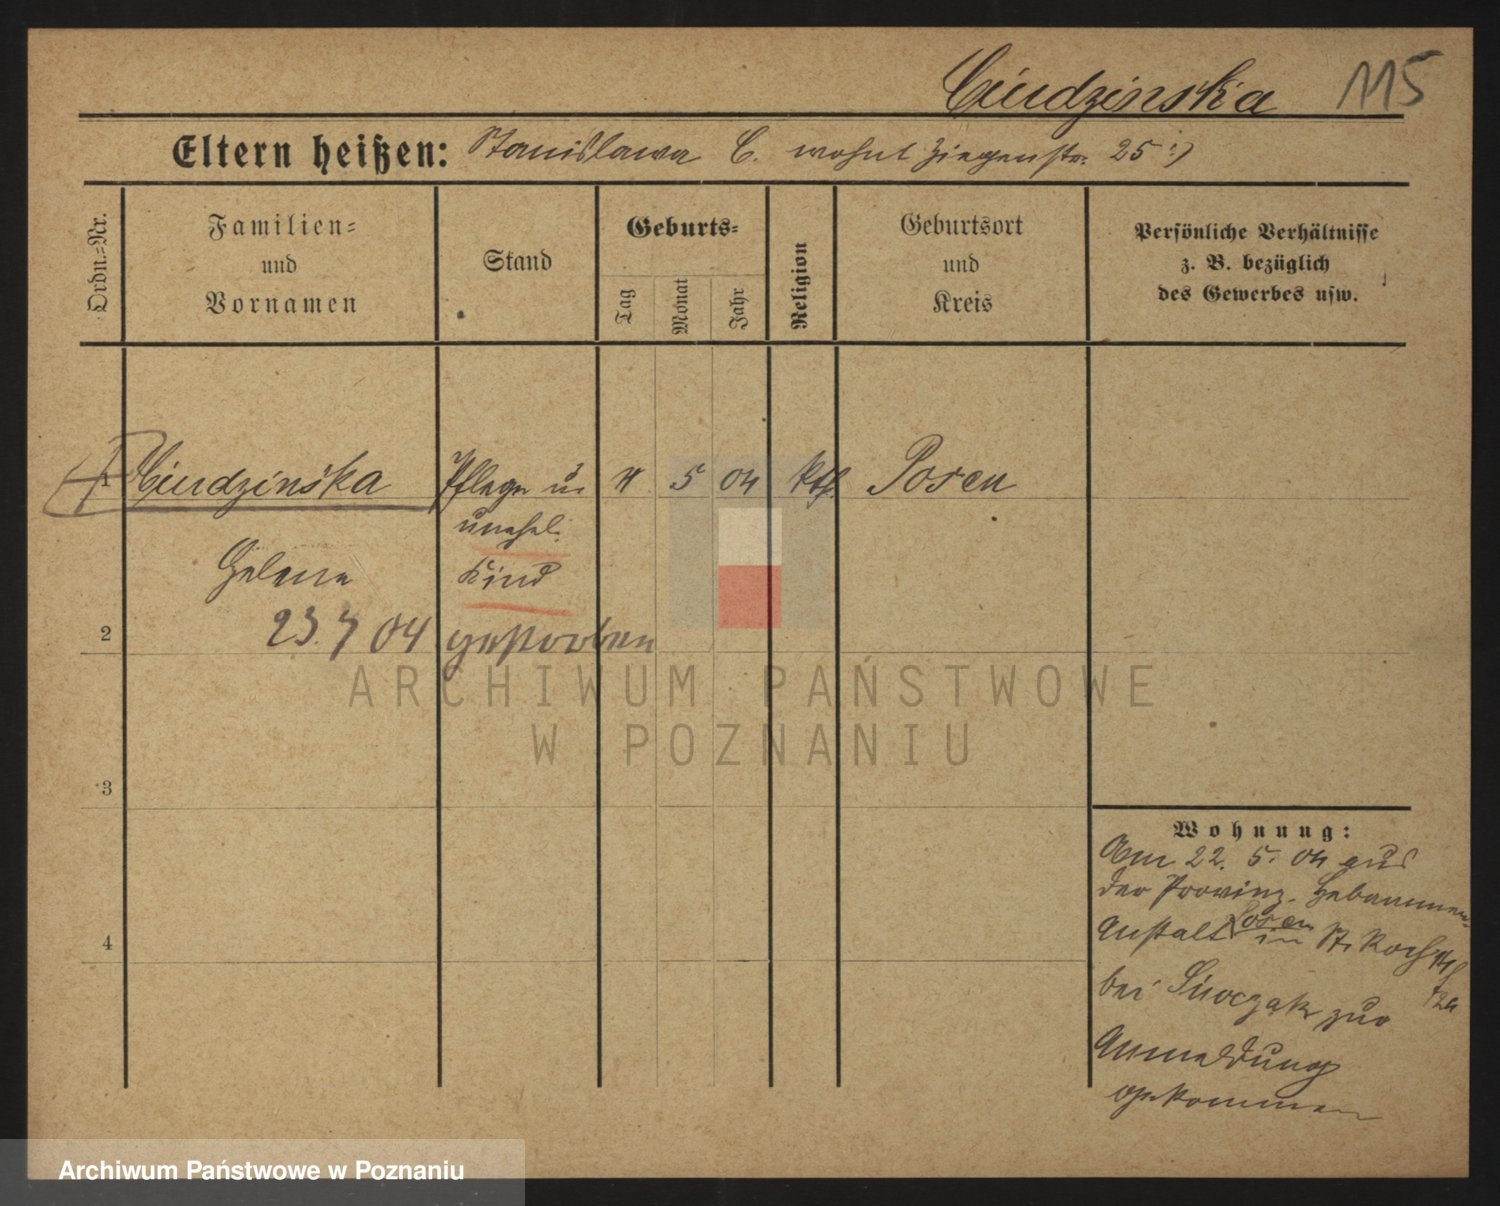 Ciudzinska 115
Eltern heißen: Stanislawa C. wohnt Ziegenstr. 25 :)
Ordn.=Nr.
Familien=
und
Vornamen
Stand
Geburts=
Tag
Monat
Jahr
Religion
Geburtsort
und
Kreis
Persönliche Verhältnisse
z. B. bezüglich
des Gewerbes usw.
1 Ciudzinska Pflege u. 5 04 kth. Posen
unehel.
Kind
Helena
2 23. 7 04 gestorben
ARCHIWUM PAŃSTWOWE
W POZNANIU
3
4
Wohnung:
Am 22. 5. 04 aus
der Provinz. Hebammen
Anstalt Posen in St. Roch
bei zur
Anmeldung
gekommen
Archiwum Państwowe w Poznaniu